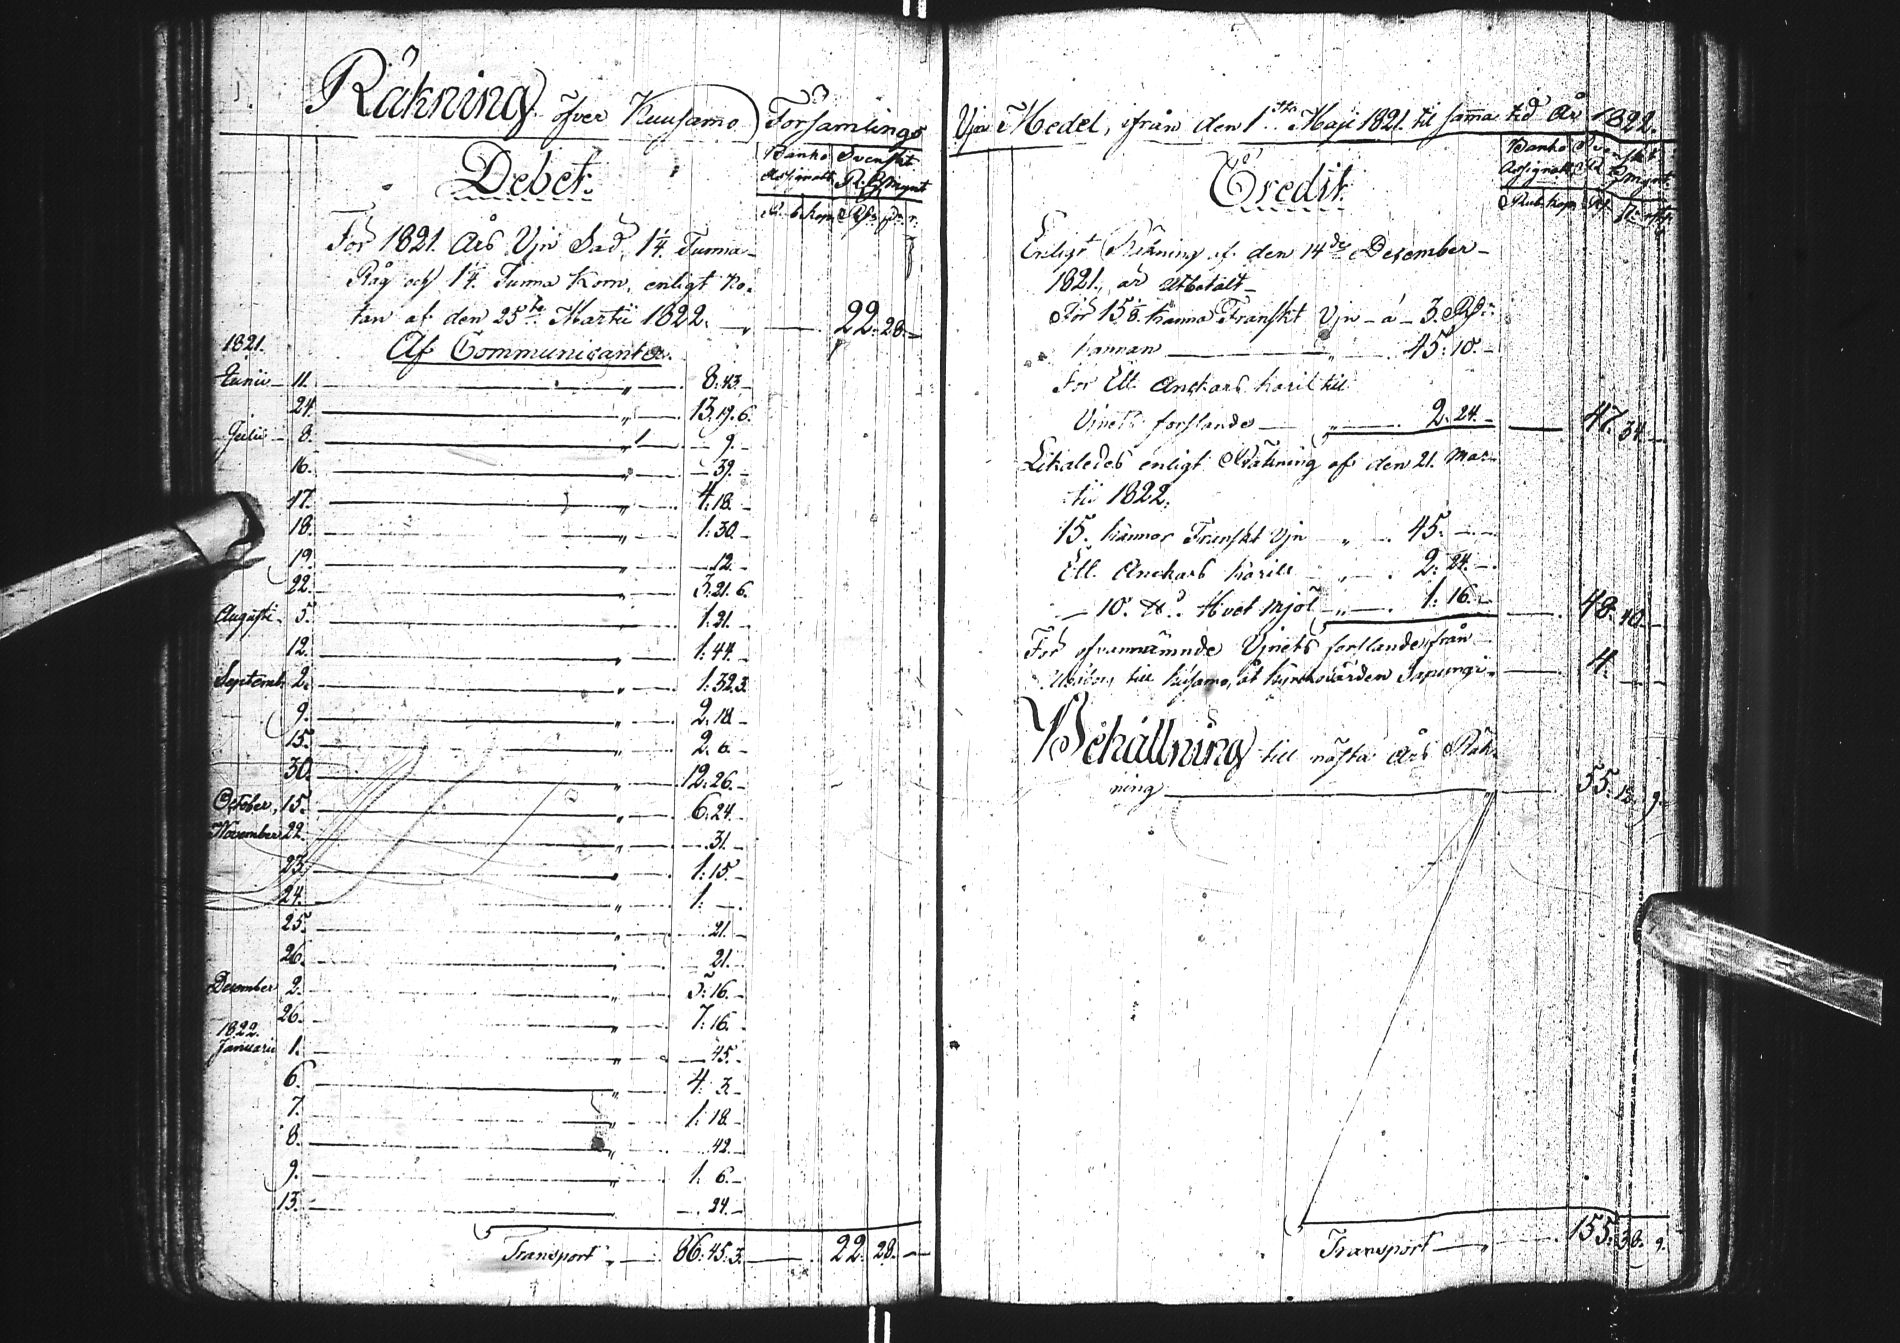 Räkning öfver Kuusamo Församlings
Debet.
Banko Assignatt. Svenskt R.G. Mynt
Rub. kop. Rd. s. r.
För 1821 Års Vjn Säd, 1 1/4 Tunna
Råg och 1 1/4 Tunna Korn, enligt No-
tan af den 25te Martii 1822. " — 22. 28. —
1821. Af Communicanter.
Junii 11. " — 8. 43. —
24. " — 13. 19. 6.
Julii 8. " 1 — 9. —
16. " — 39. —
17. " — 4. 18. —
18. " — 1: 30. —
19. " — 12. —
22. " — 3. 21. 6.
Augusti 5. " — 1. 21. —
12. " — 1: 44. —
Septemb. 2. " — 1: 32. 3.
9. " — 2. 18. —
15. " — 2. 6. —
30. " — 12: 26. —
October, 15. " — 6: 24. —
November 22. " — 31. —
23. " — 1: 15. —
24. " — 1: —
25. " — 21. —
26. " — 21. —
December 2. " — 5: 16. —
26. " — 7: 16. —
1822.
Januarii 1. " — 45. —
6. " — 4: 3. —
7. " — 1: 18. —
8. " — 42. —
9. " — 1: 6. —
13. " — 24. —
Transport " — 86. 45. 3. — 22. 28. —
Vjn Medel, ifrån den 1sta Maji 1821. til samma tid År 1822.
Credit
Banko Assignatt. Svenskt R.G. Mynt.
Rub. kop. Rd.
Enligt Räkning af den 14de December
1821, är utbetalt
För 15 1/8 kanna Franskt Vjn — á — 3. Rd:
kannan — " — 45: 18. —
För Ett Anckars Käril till
Vinets forslande — " — 2. 24. — 47. 34. —
Likaledes enligt Räkning af den 21. Mar-
tii 1822.
15. kannor Franskt Vjn " — 45. —
Ett Anckars Kärill " — 2: 24. —
10. ℔ Hvet Mjöl " — 1: 16. — 48. 40. —
För ofvannämnde Vinets forslande från
till Kusamo, åt Kyrkovärden — 4. —
Behållning till nästa Års Räk-
ning — " — 55. 12. 9.
Transport — " — 155. 38. 9.